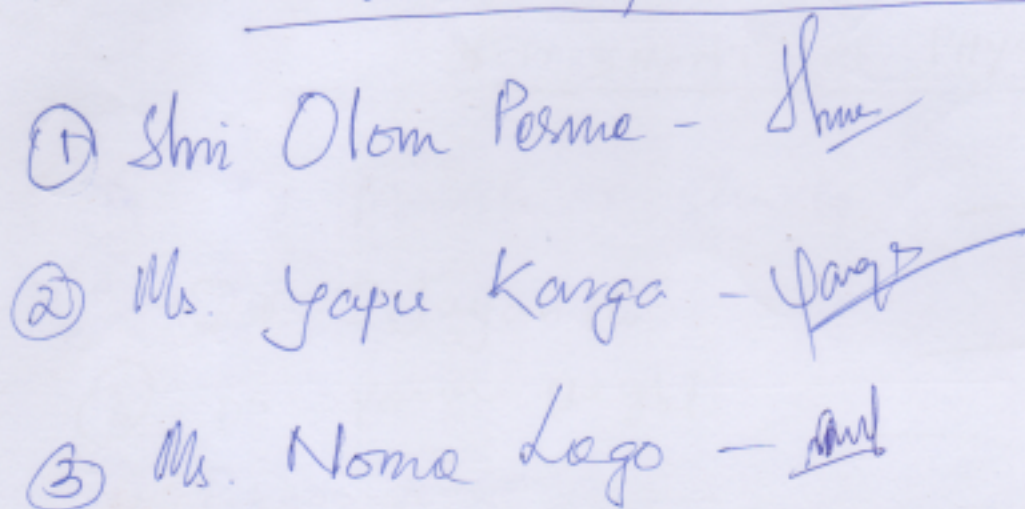 ① Shri Olom Perme -
② Ms. Yapu Karga -
③ Ms. Noma Lego -